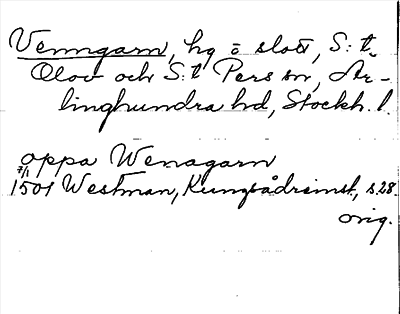 Venngarn, hg o slott, S:t
Olov och S:t Pers sn, Ar-
linghundra hd, Stockh. l.
oppa Wenagarn
7/1 1501 Westman, Kungsådreinst, s 28.
orig.